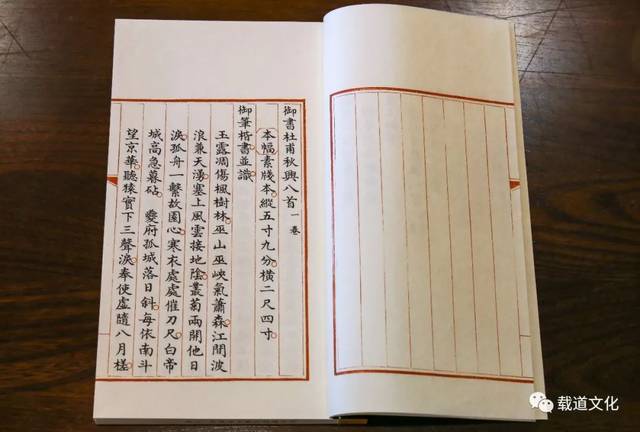 御書杜甫秋興八首一卷
本幅素牋本縱五寸九分橫二尺四寸
御筆楷書並識
玉露凋傷楓樹林巫山巫峽氣蕭森江間波
浪兼天湧塞上風雲接地陰叢菊兩開他日
淚孤舟一繫故園心寒衣處處催刀尺白帝
城高急暮砧 夔府孤城落日斜每依南斗
望京華聽猿實下三聲淚奉使虛隨八月槎
载道文化